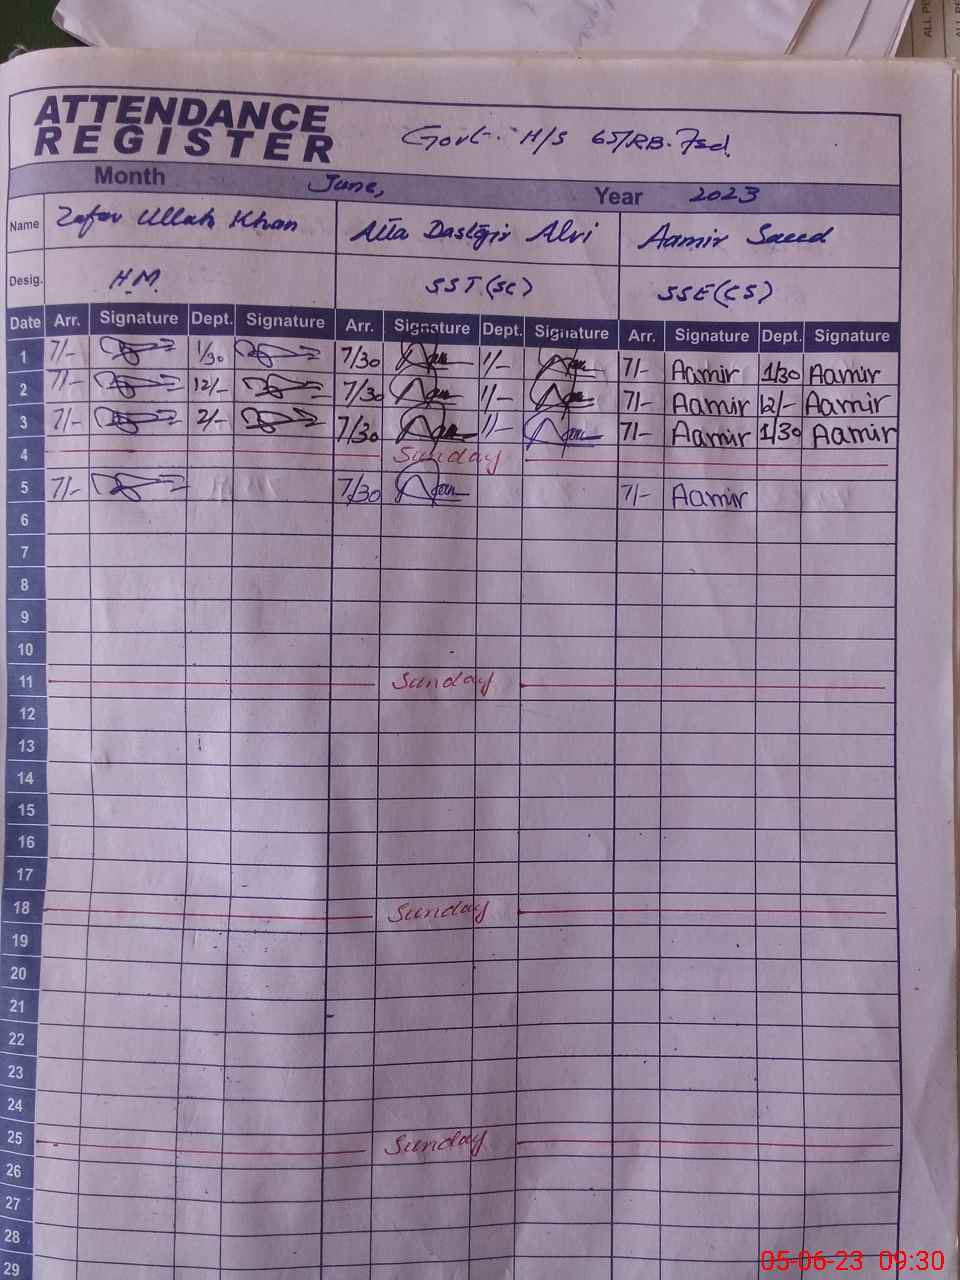 ALL PE
ALL PE
ATTENDANCE
REGISTER
Govt. H/S 65/RB. Fsd.
Month June, Year 2023
Name Zafar Ullah Khan Atta Dastgir Alvi Aamir Saeed
Desig. H.M. SST (SC) SSE (CS)
Date Arr. Signature Dept. Signature Arr. Signature Dept. Signature Arr. Signature Dept. Signature
1 7/- 1/30 7/30 11/- 7/- Aamir 1/30 Aamir
2 7/- 12/- 7/30 11/- 7/- Aamir 12/- Aamir
3 7/- 2/- 7/30 11/- 7/- Aamir 1/30 Aamir
4 Sunday
5 7/- 7/30 7/- Aamir
6
7
8
9
10
11 Sunday
12
13
14
15
16
17
18 Sunday
19
20
21
22
23
24
25 Sunday
26
27
28
29
05-06-23 09:30